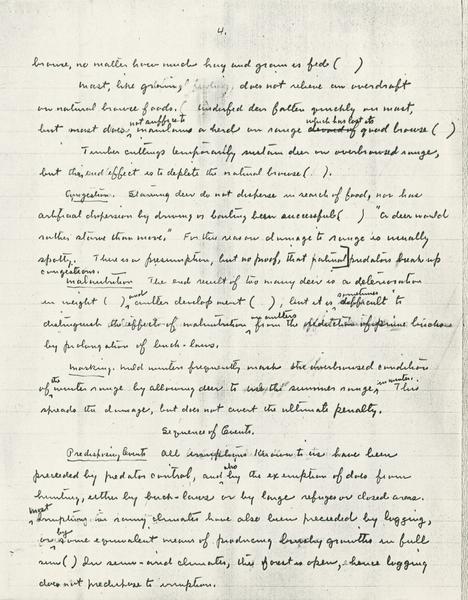 4.
browse, no matter how much hay and grain is fed ( )
Mast, like grain, does not relieve an overdraft
on natural browse foods. ( Underfed deer fatten quickly on mast,
but mast does not suffice to maintain a herd on range which has lost its good browse ( )
Timber cuttings temporarily sustain deer on overbrowsed range,
but the end effect is to deplete the natural browse ( ).
Congestion. Starving deer do not disperse in search of food, nor has
artificial dispersion by driving or baiting been successful ( ) "A deer would
rather starve than move." For this reason damage to range is usually
spotty. There is a presumption, but no proof, that natural predators break up
congestions.
Malnutrition The end result of too many deer is a deterioration
in weight ( ) and antler development ( ), but it is sometimes difficult to
distinguish the effects of malnutrition on antlers from the of prime bucks
by prolongation of buck-laws.
Masking. Mild winters frequently mask the overbrowsed condition
of the winter range by allowing deer to use the summer range in winter. This
spreads the damage, but does not avert the ultimate penalty.
Sequence of Events.
Predisposing Events All irruptions known to us have been
preceded by predator control, and also by the exemption of does from
hunting, either by buck-laws or by large refuges or closed areas.
Most irruptions in rainy climates have also been preceded by logging,
or by some equivalent means of producing brushy growths in full
sun ( ) In semi-arid climates, the forest is open, hence logging
does not predispose to irruption.